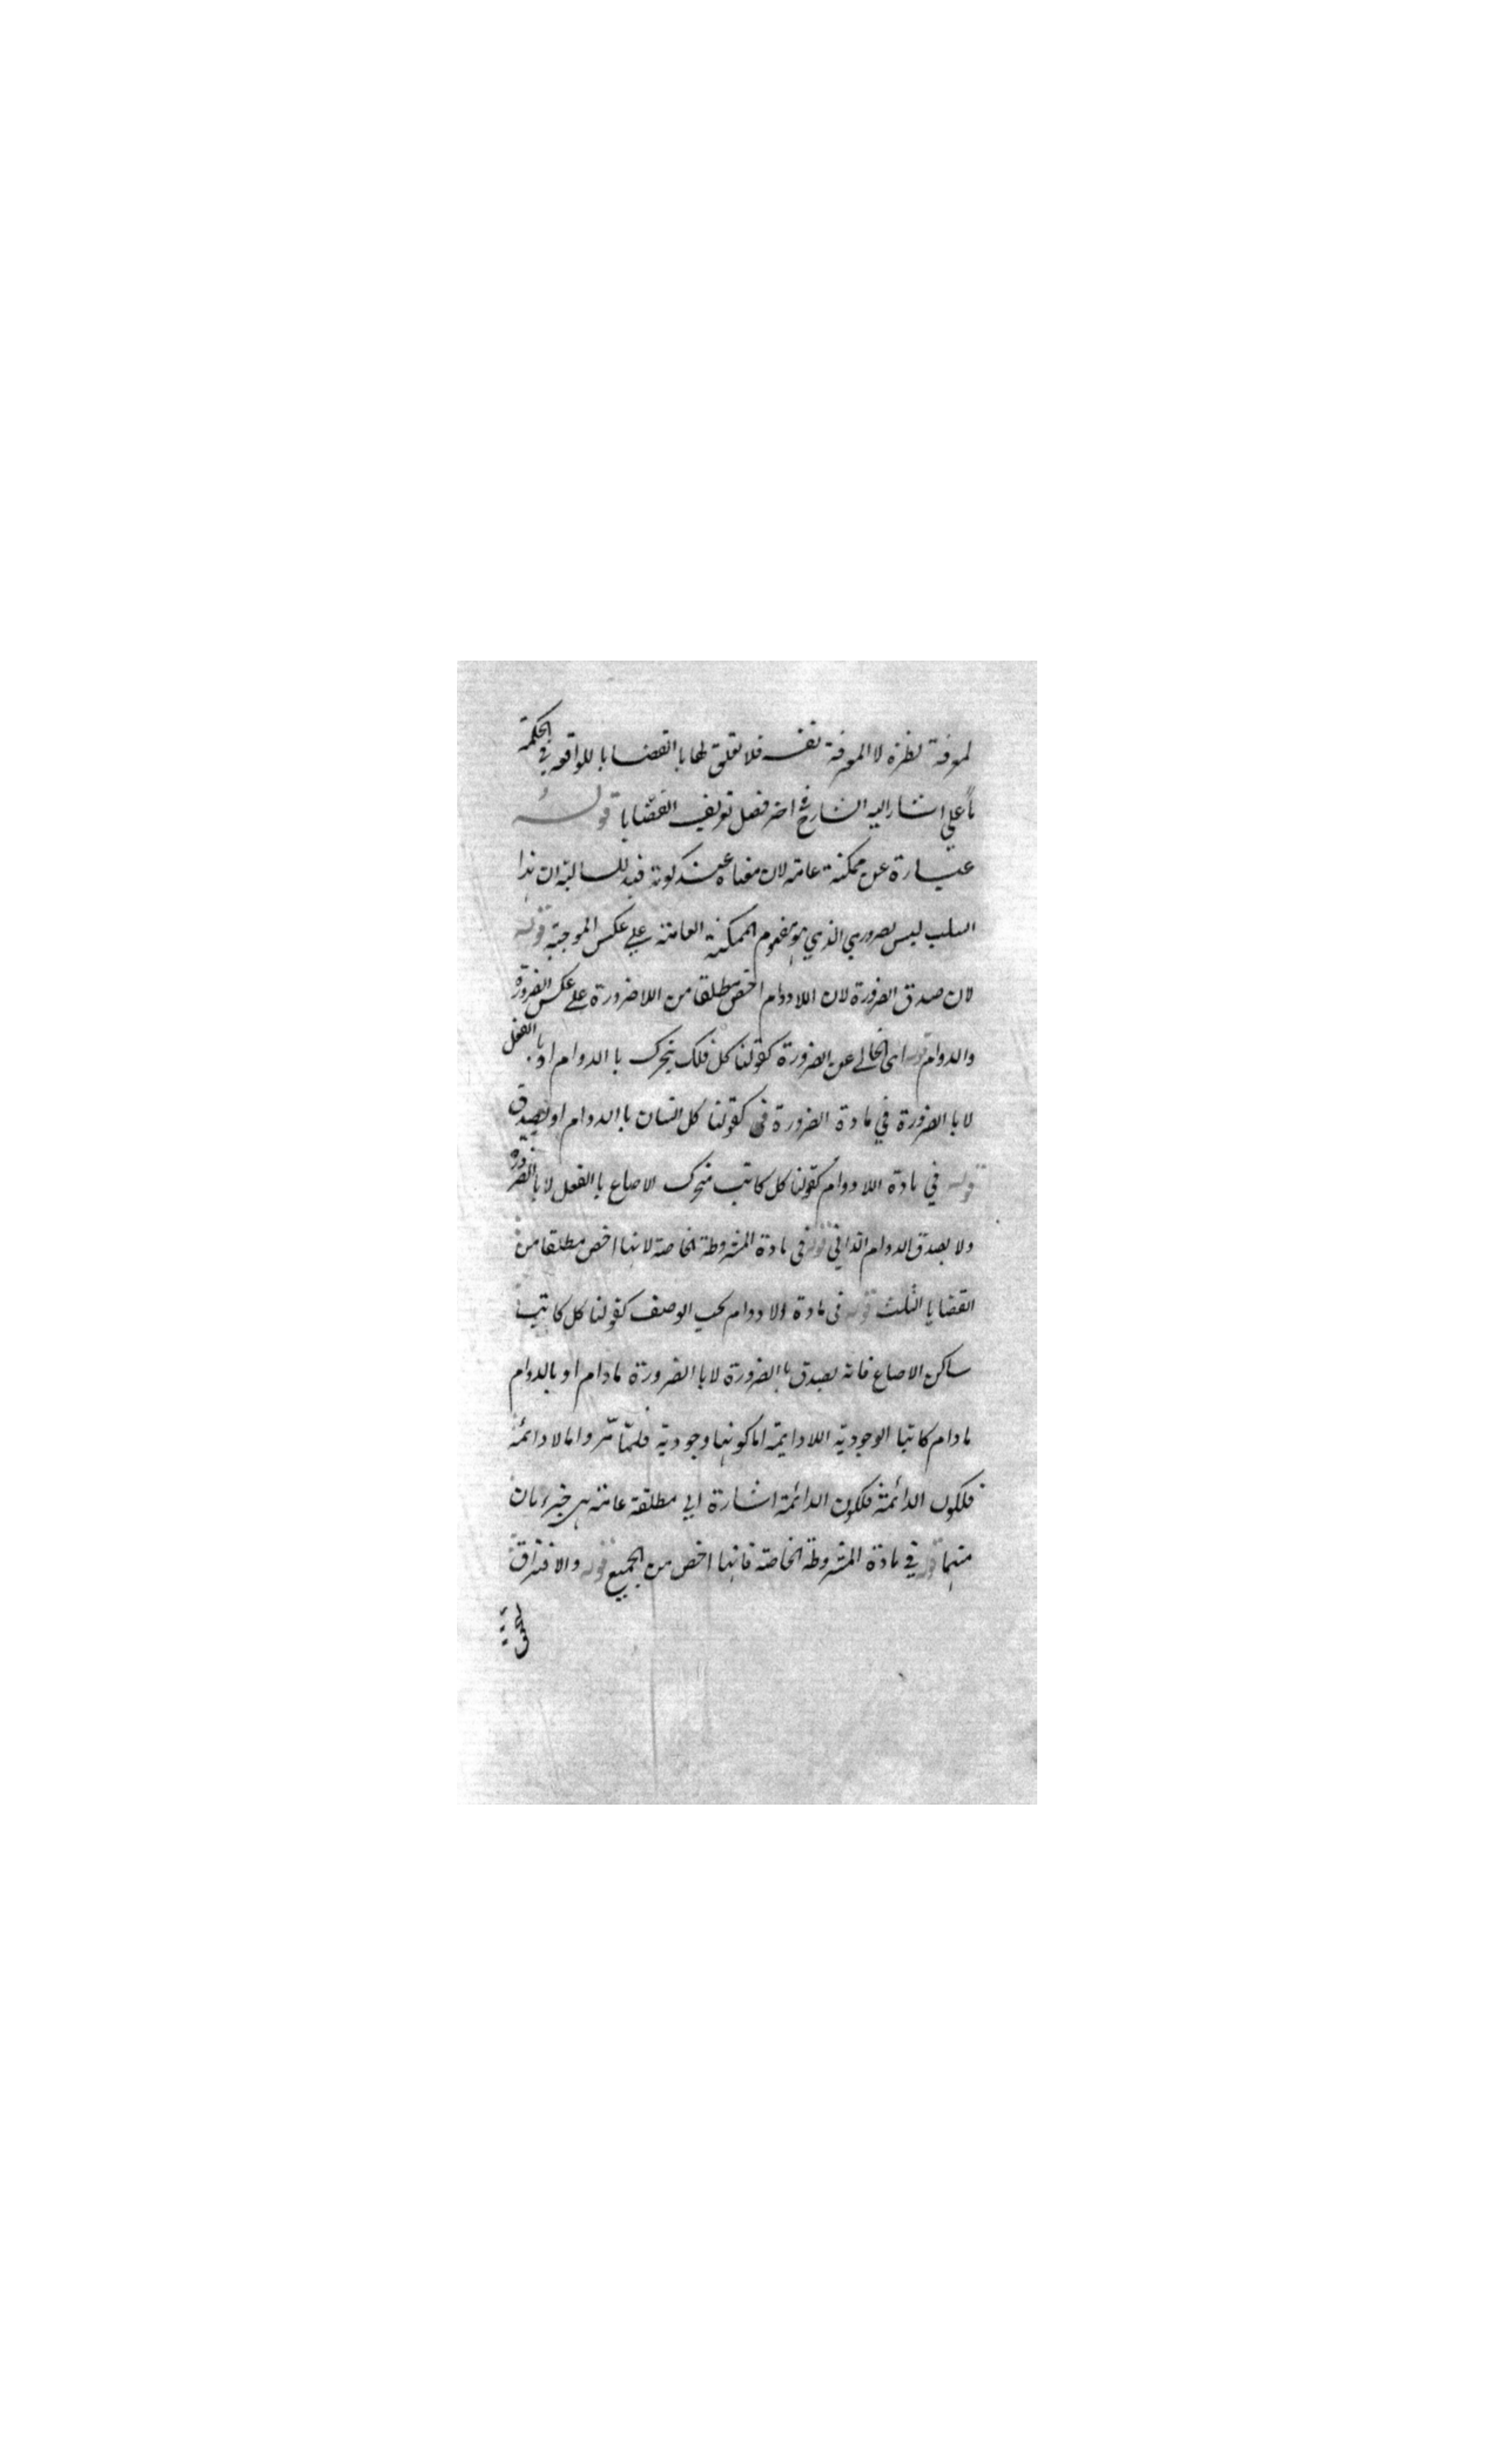 لمعرفة نظره لا المعرفة نفسه فلا تعلق لها باالقضايا للواقعه في الحكمة
ما علي اشار اليه الشارح في اخر فصل تعريف القضايا قوله
عبارة عن ممكنة عامة لان معناه عند كونه قيد للسالبة ان هذا
السلب ليس بضروري الذي هو مفهوم الممكنة العامة علي عكس الموجبة قوله
لان صدق الضرورة لان اللادوام اخص مطلقا من اللاضرورة علي عكس الضرورة
والدوام قوله اي الخالي عن الضرورة كقولنا كل فلك يتحرك باالدوام او باالفعل
لا باالضرورة في مادة الضرورة في كقولنا كل انسان باالدوام او يصدق
قوله في مادة اللادوام كقولنا كل كاتب متحرك الاصابع باالفعل لا باالضرورة
ولا يصدق الدوام الذاتي قوله في مادة المشروطة الخاصة لانها اخص مطلقا من
القضايا الثلث قوله في مادة الادوام بحسب الوصف كقولنا كل كاتب
ساكن الاصابع فانه يصدق باالضرورة لا باالضرورة مادام او بالدوام
مادام كاتبا الوجودية اللادايمة اما كونها وجودية فلما مر واما لا دائمة
فلكون الدائمة فلكون الدائمة اشارة الي مطلقة عامة هي
منهما قوله في مادة المشروطة الخاصة فانها اخص من الجميع قوله والافتراق